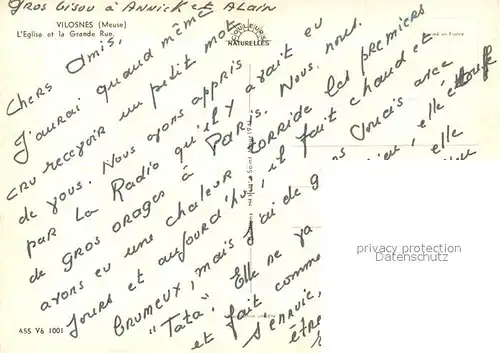 GROS BISOU à ANNICK et ALAIN
VILOSNES (Meuse)
L'Eglise et la Grande Rue.
COULEURS
NATURELLES
en France
Chers Amis,
J'aurai quand même
cru recevoir un petit mot
de vous. Nous avons appris
par la Radio qu'il y avait eu
de gros orages à PARIS. Nous, nous
avons eu une chaleur torride les premiers
jours et aujourd'hui, il fait chaud et
brumeux, mais j'ai de g soucis avec
"Tata". Elle ne va elle étouffe
et fait comme elle
s'ennuie,
être
ASS V6 1001
privacy protection
Datenschutz